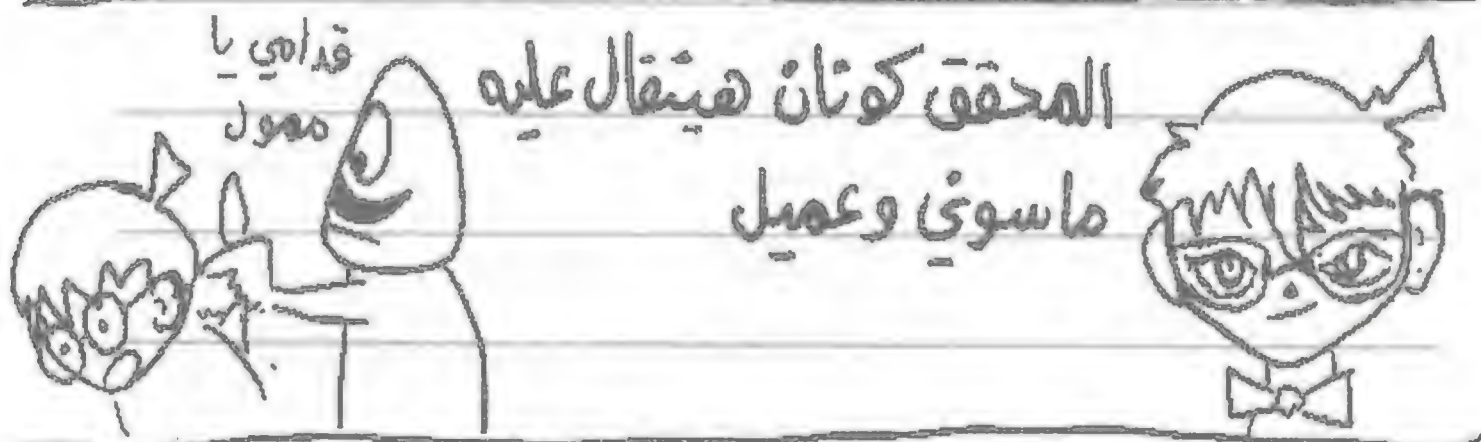 المحقق كونان هيتقال عليه
ماسوني وعميل
قدامي يا
ممول